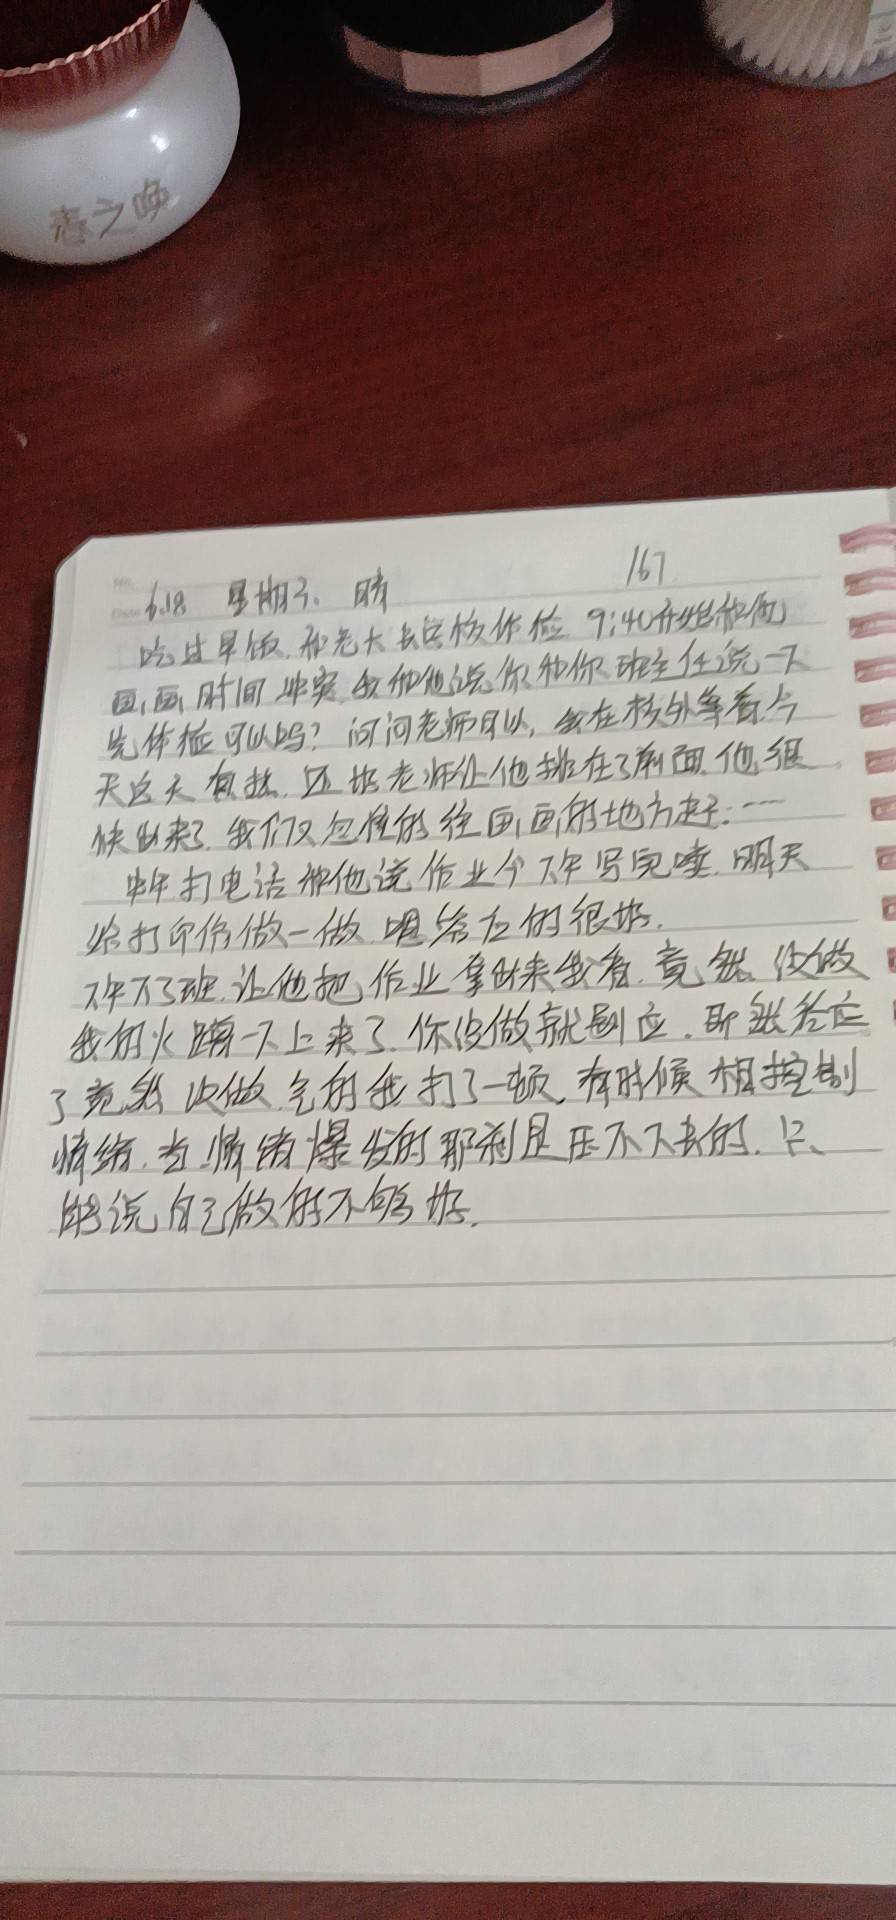 春之唤
167
6.18 星期三、晴
吃过早饭.和老大去学校体检 9:40开始和他
画画时间冲突.我和他说你和你班主任说一下
先体检可以吗?问问老师可以,我在校外等着.今
天白天有热.还好老师让他排在了前面.他很
快出来了.我们又匆忙的往画画的地方赶……
中午打电话和他说作业今下午写完喽.明天
给打印你做一做.嗯答应的很好.
下午下了班.让他把作业拿出来我看.竟然没做
我的火蹭一下上来了.你没做就别应.既然答应
了竟然没做.气的我打了一顿.有时候想控制
情绪.当情绪爆发的那刹是压不下去的.只
能说自己做的不够好.